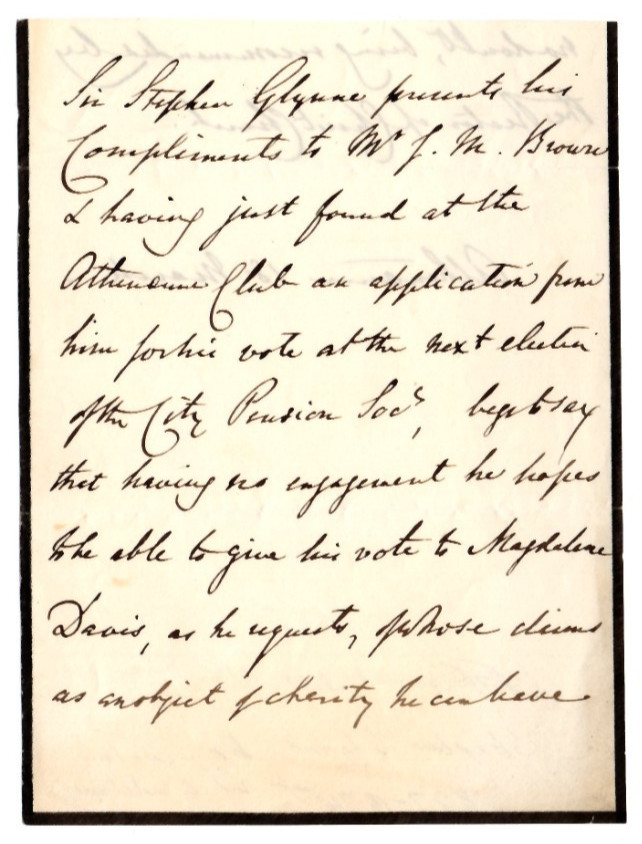 Sir Stephen Glynne presents his
Compliments to Mr J. M. Brown
& having just found at the
Athenaeum Club an application from
him for his vote at the next election
of the City Pension Socy, begs to say
that having no engagement he hopes
to be able to give his vote to Magdalene
Davis, as he requests, of whose claims
as an object of charity he can have